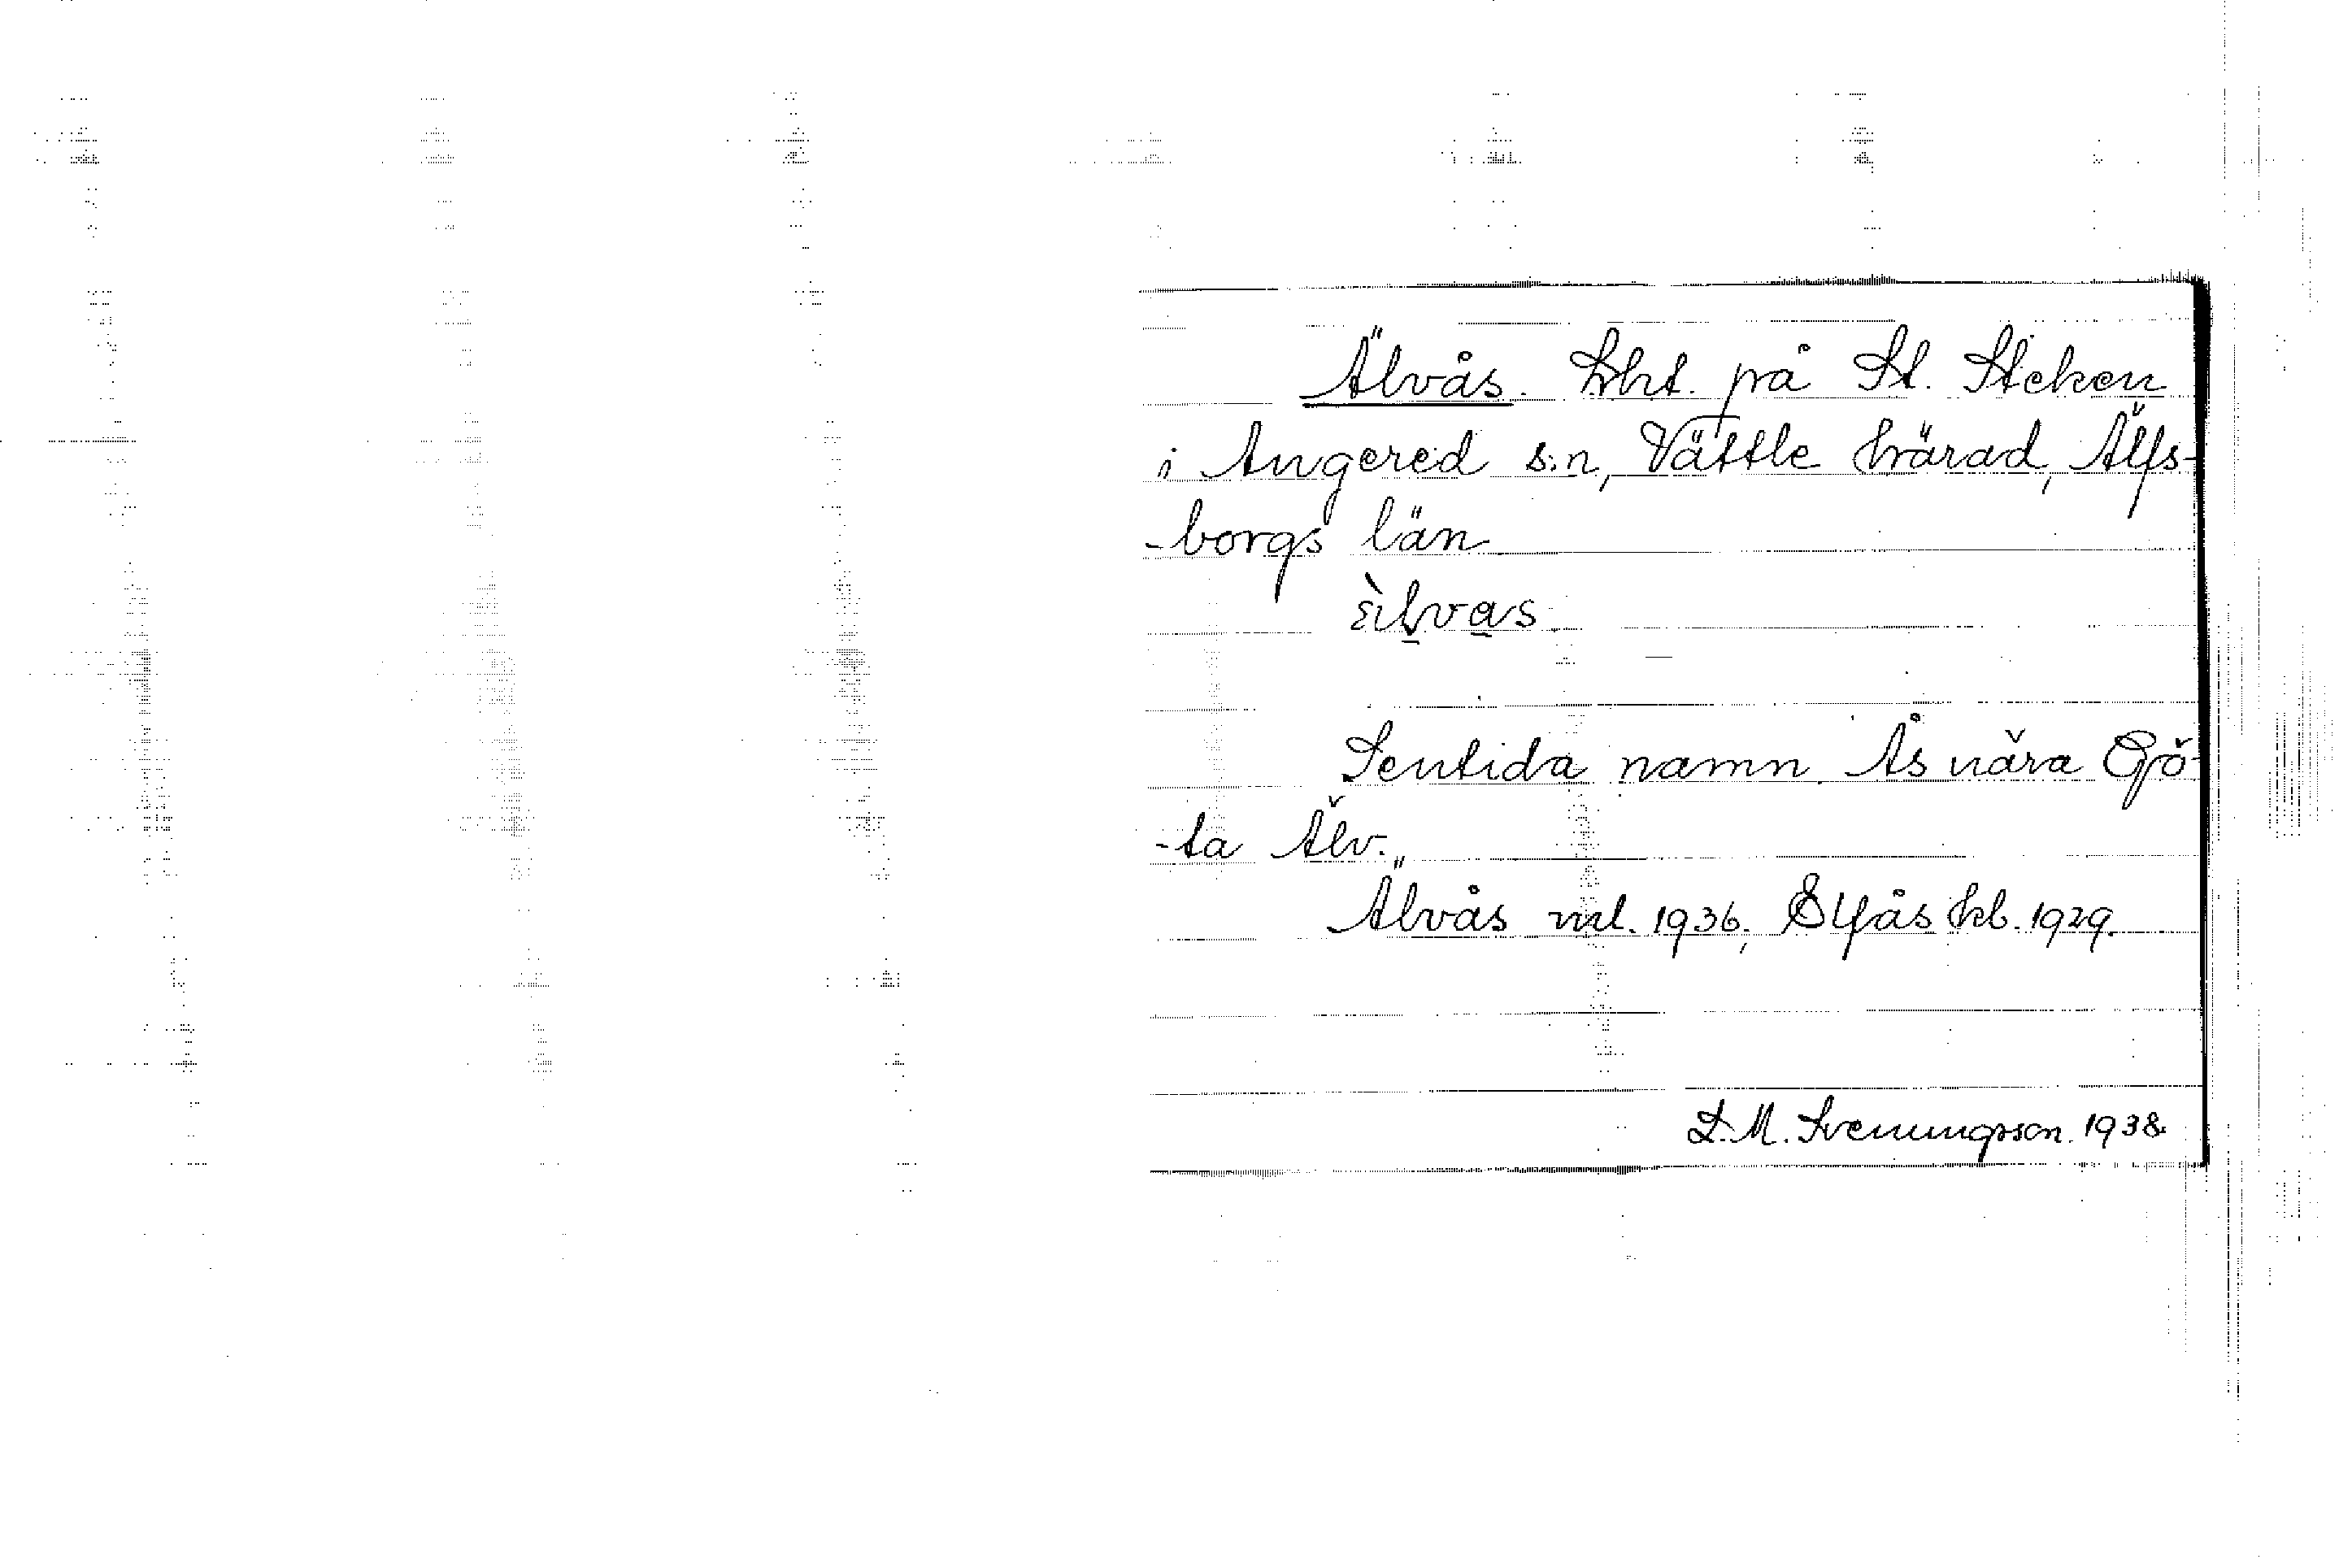 Älvås. Lht. på St. Steken
i Angered s:n, Vättle härad, Älfs-
-borgs län
Sentida namn. Ås nära Gö-
-ta Älv.
Älvås ml. 1936, Elfås kb. 1929.
D.M. Svenungsson. 1938.